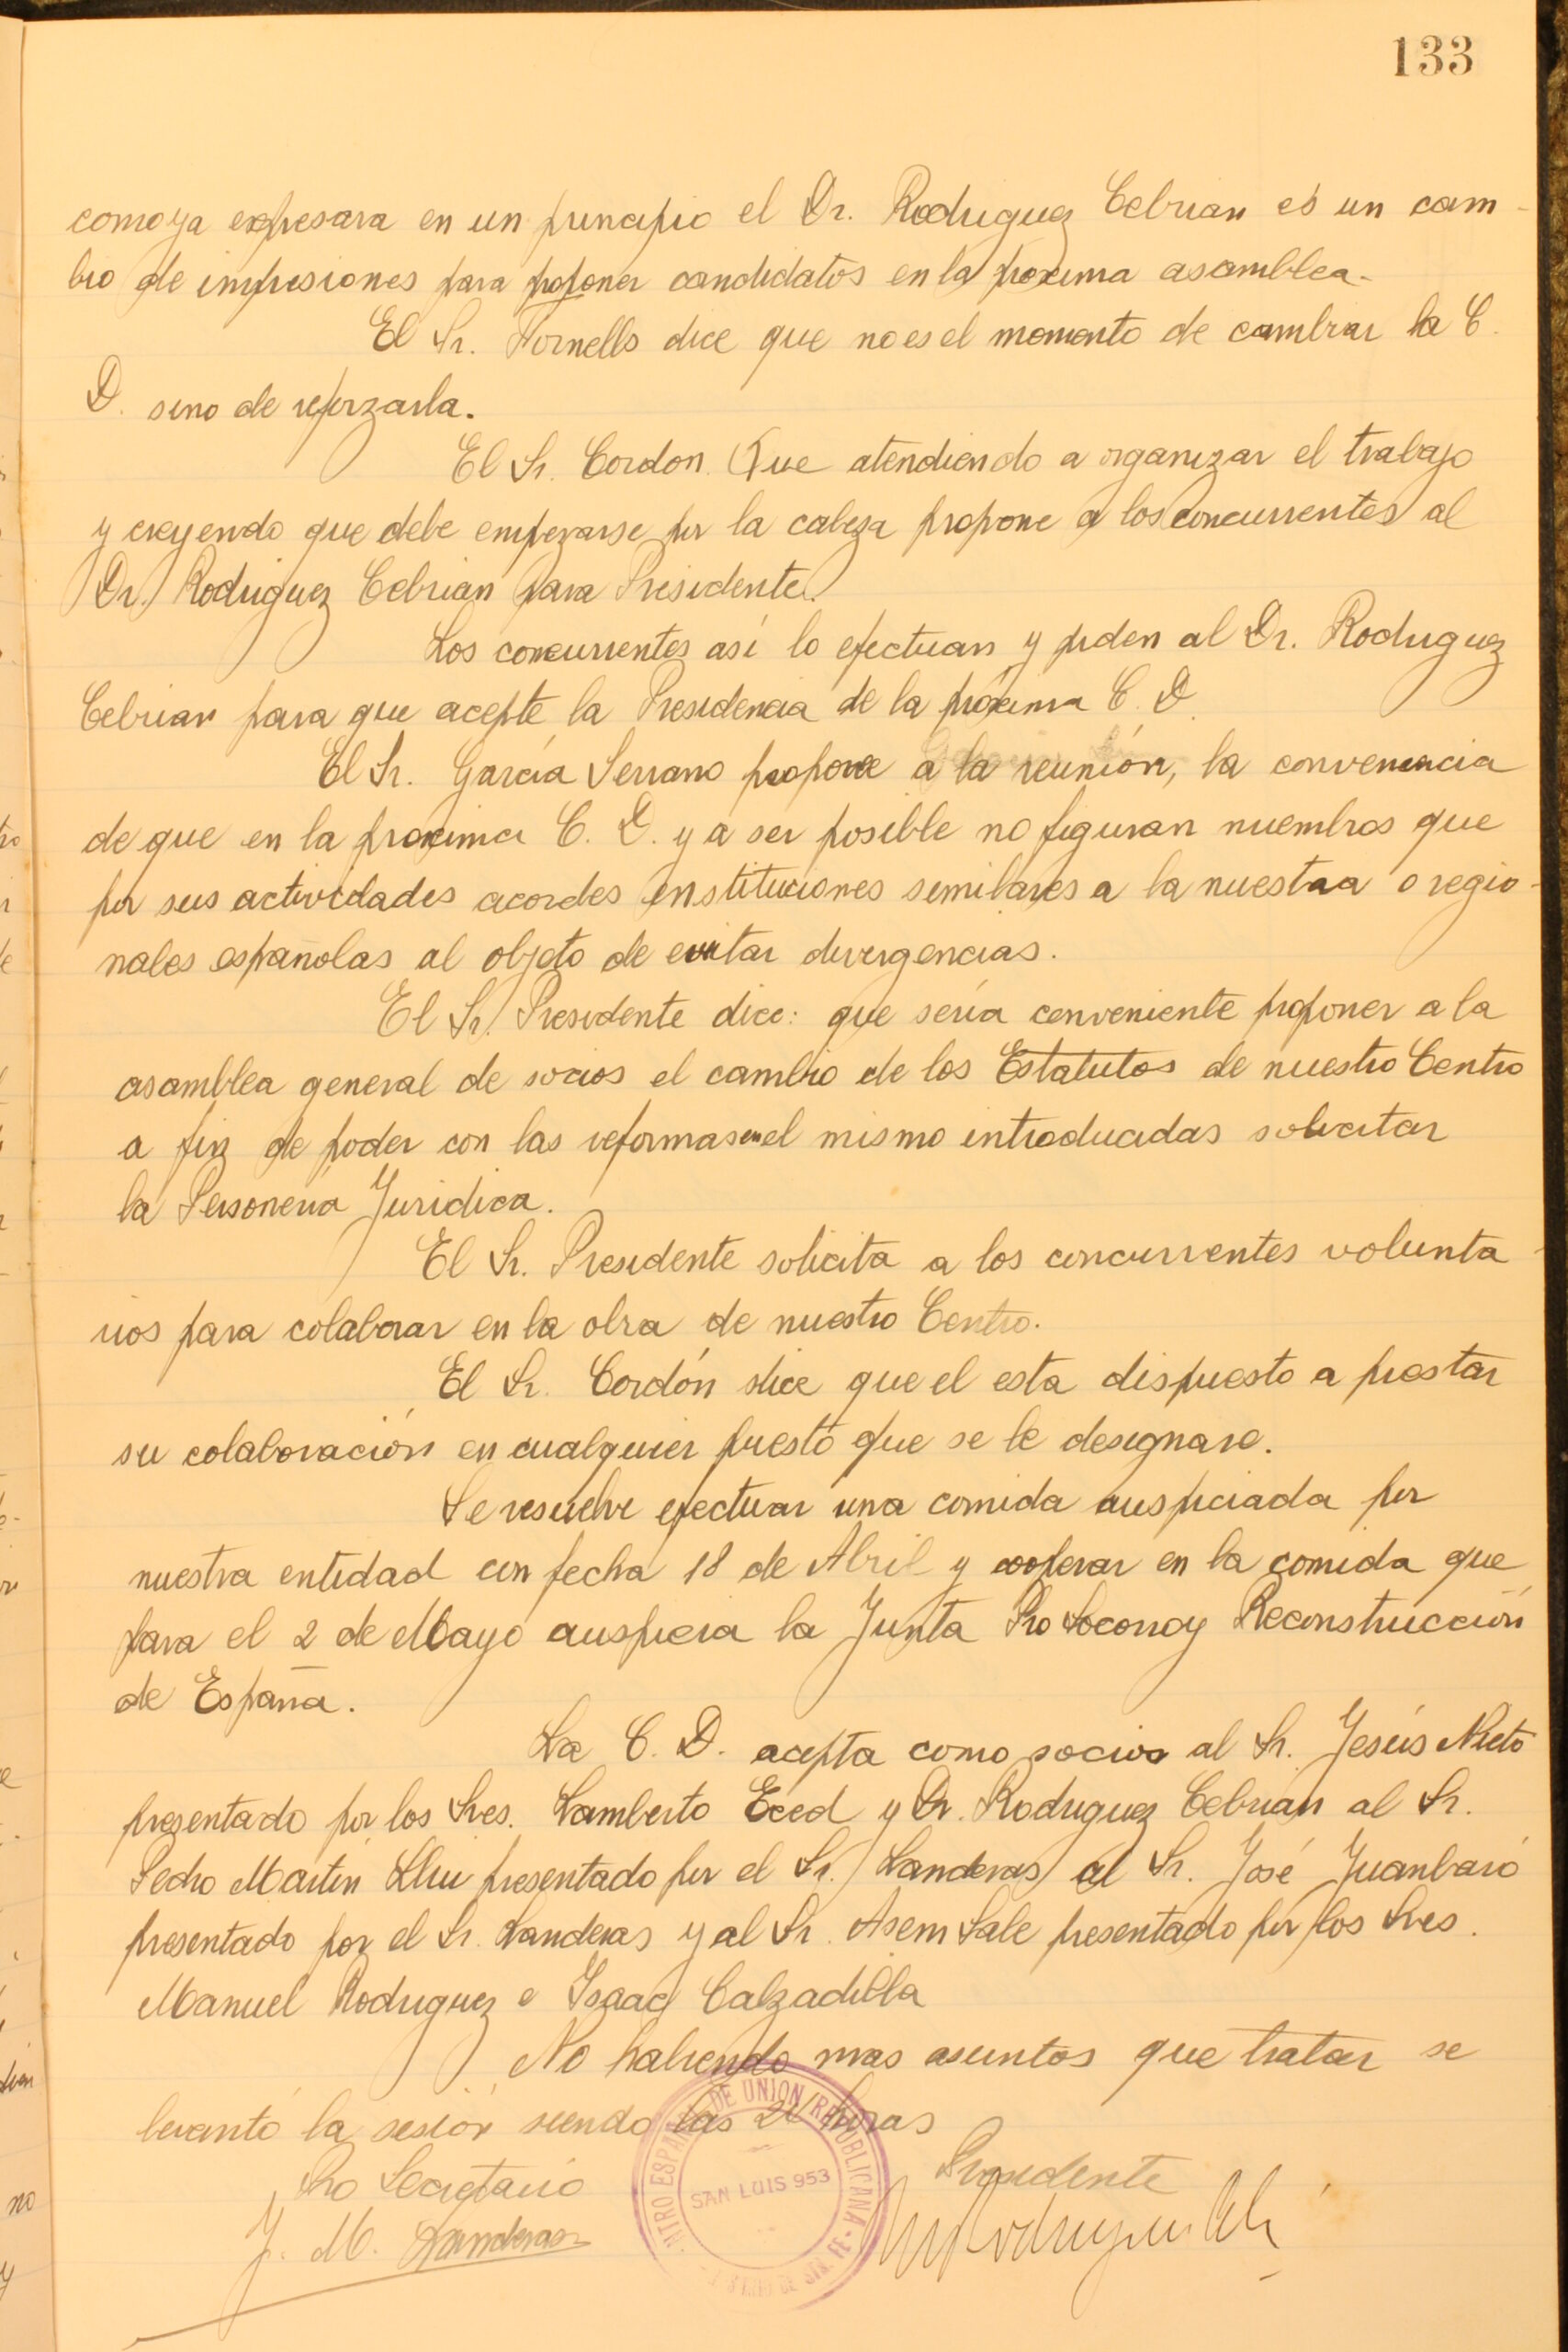 133
como ya expresara en un principio el Dr. Rodriguez Cebrian es un cam-
bio de impresiones para proponer candidatos en la proxima asamblea.-
El Sr. Fornells dice que no es el momento de cambiar la C.
D. sino de reforzarla.
El Sr. Cordon. Que atendiendo a organizar el trabajo
y creyendo que debe empezarse por la cabeza propone a los concurrentes al
Dr. Rodriguez Cebrian para Presidente.
Los concurrentes así lo efectuan y piden al Dr. Rodriguez
Cebrian para que acepte la Presidencia de la próxima C. D.
El Sr. García Serrano propone a la reunión, la convenencia
de que en la proxima C. D. y a ser posible no figuran miembros que
por sus actividades acordes instituciones similares a la nuestra o regio-
nales españolas al objeto de evitar divergencias.
El Sr. Presidente dice: que sería conveniente proponer a la
asamblea general de socios el cambio de los Estatutos de nuestro Centro
a fin de poder con las reformas en el mismo introducidas solicitar
la Personería Juridica.
El Sr. Presidente solicita a los concurrentes volunta-
rios para colaborar en la obra de nuestro Centro.
El Sr. Cordón dice que el esta dispuesto a prestar
su colaboración en cualquier puesto que se le designare.
Se resuelve efectuar una comida auspiciada por
nuestra entidad con fecha 18 de Abril y cooperar en la comida que
para el 2 de Mayo auspicia la Junta Pro Socorro y Reconstrucción
de España.
La C. D. acepta como socios al Sr. Jesús Nieto
presentado por los Sres. Lamberto Eced y Dr. Rodriguez Cebrian al Sr.
Pedro Martin presentado por el Sr. Landeras al Sr. José Juanbaró
presentado por el Sr. Landeras y al Sr. Asem Sale presentado por los Sres.
Manuel Rodriguez e Isaac Calzadilla
No habiendo mas asuntos que tratar se
levantó la sesión siendo las horas
Pro Secretario Presidente
J. M. Landeras
CENTRO ESPAÑOL DE UNION REPUBLICANA
SAN LUIS 953